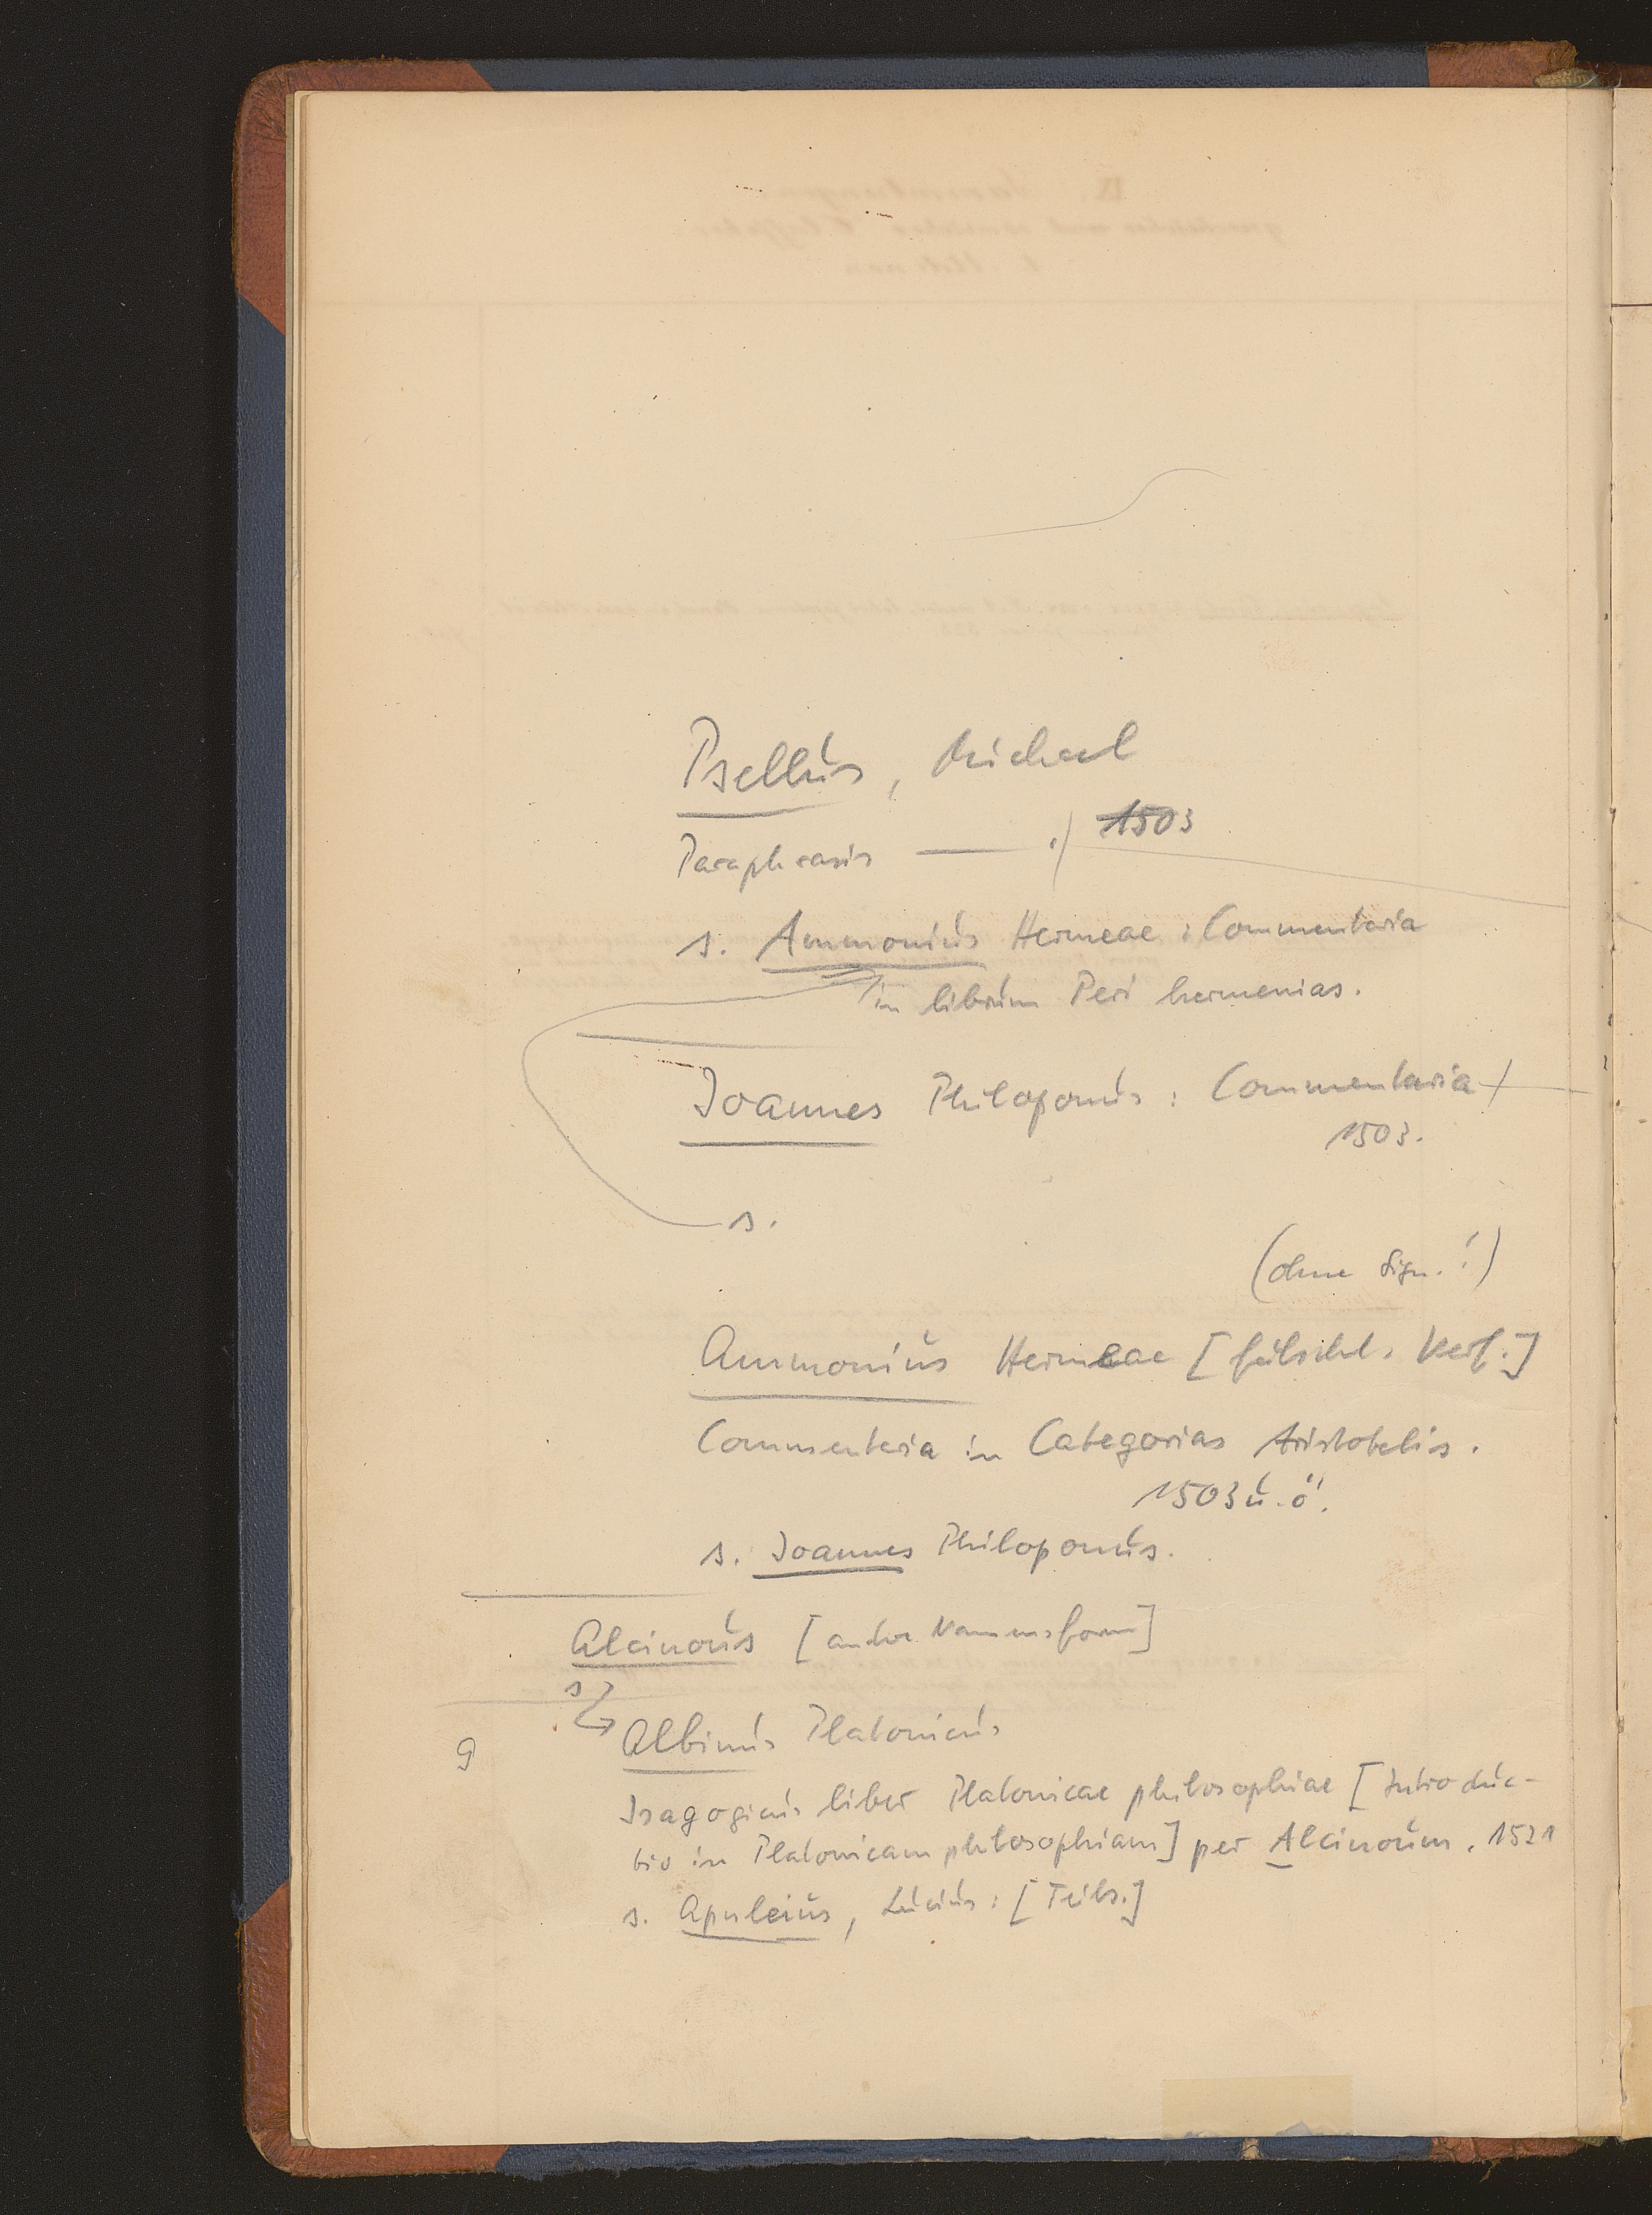 Psellus, Michael
Paraphrasis —— ./. 1503
s. Ammonius Hermeae : Commentaria
in librum Peri hermenias.
Joannes Philoponus : Commentaria
1503.
s.
(ohne Sign.!)
Ammonius Hermeae [fälschl. Verf.]
Commentaria in Categorias Aristotelis.
1503 u. ö.
s. Joannes Philoponus.
Alcinous [andre Namensform]
s.
Albinus Platonicus
9
Isagogicus liber Platonicae philosophiae [Introduc-
tio in Platonicam philosophiam] per Alcinoum. 1521
s. Apuleius, Lucius: [Teils.]